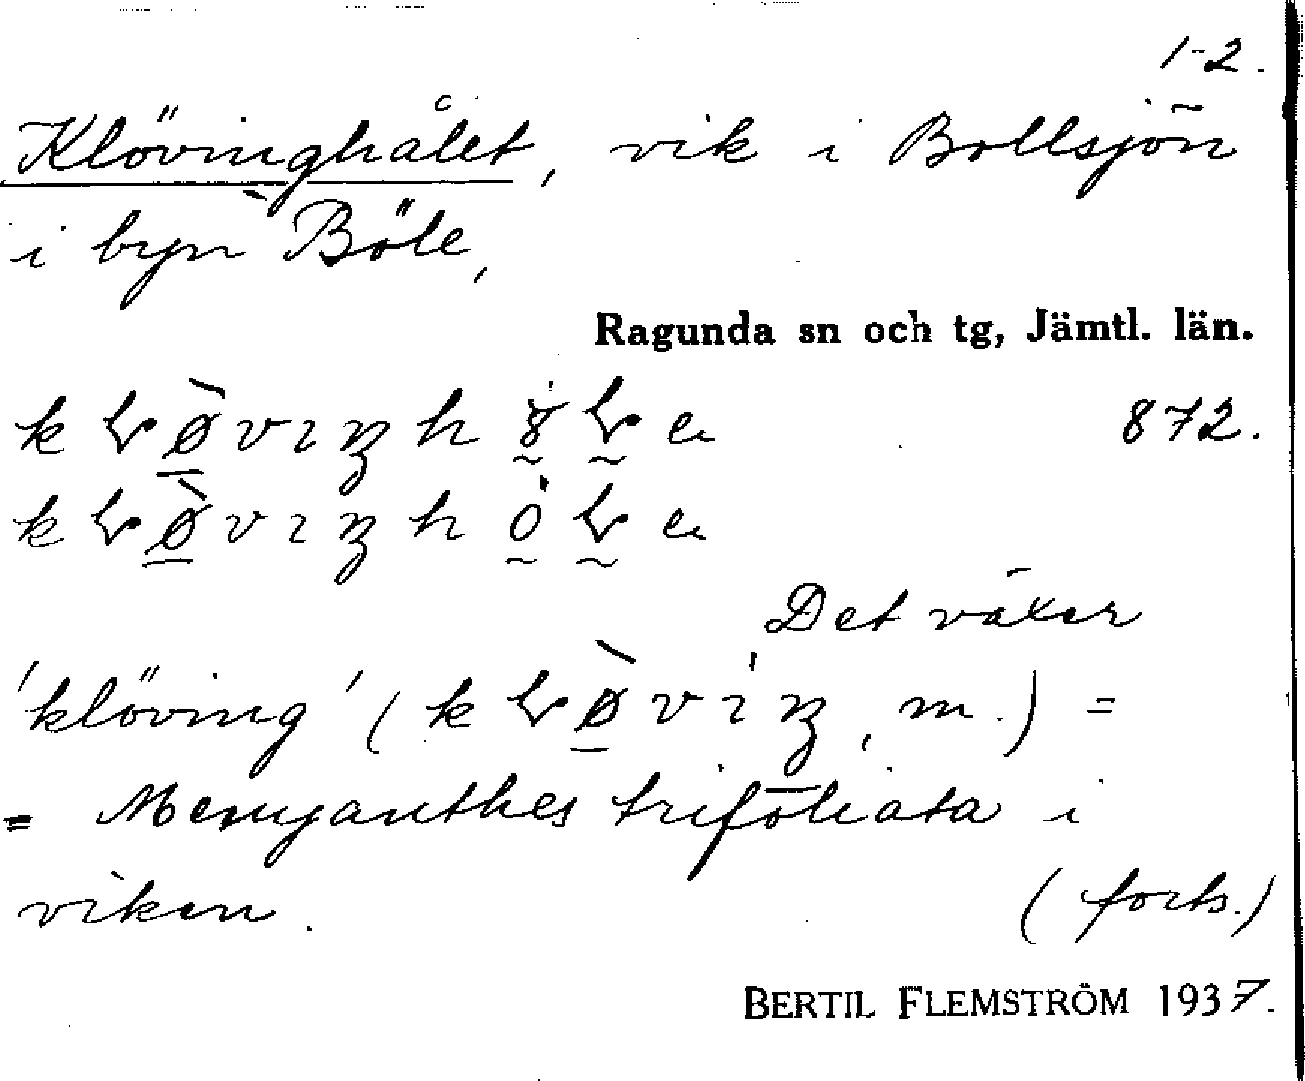 1-2.
Klövinghålet, vik i Bollsjön
i byn Böle,
Ragunda sn och tg, Jämtl. län.
872.
Det växer
'klöving' ( , m.) =
= Menyanthes trifoliata i
viken.
(forts.)
BERTIL FLEMSTRÖM 1937.